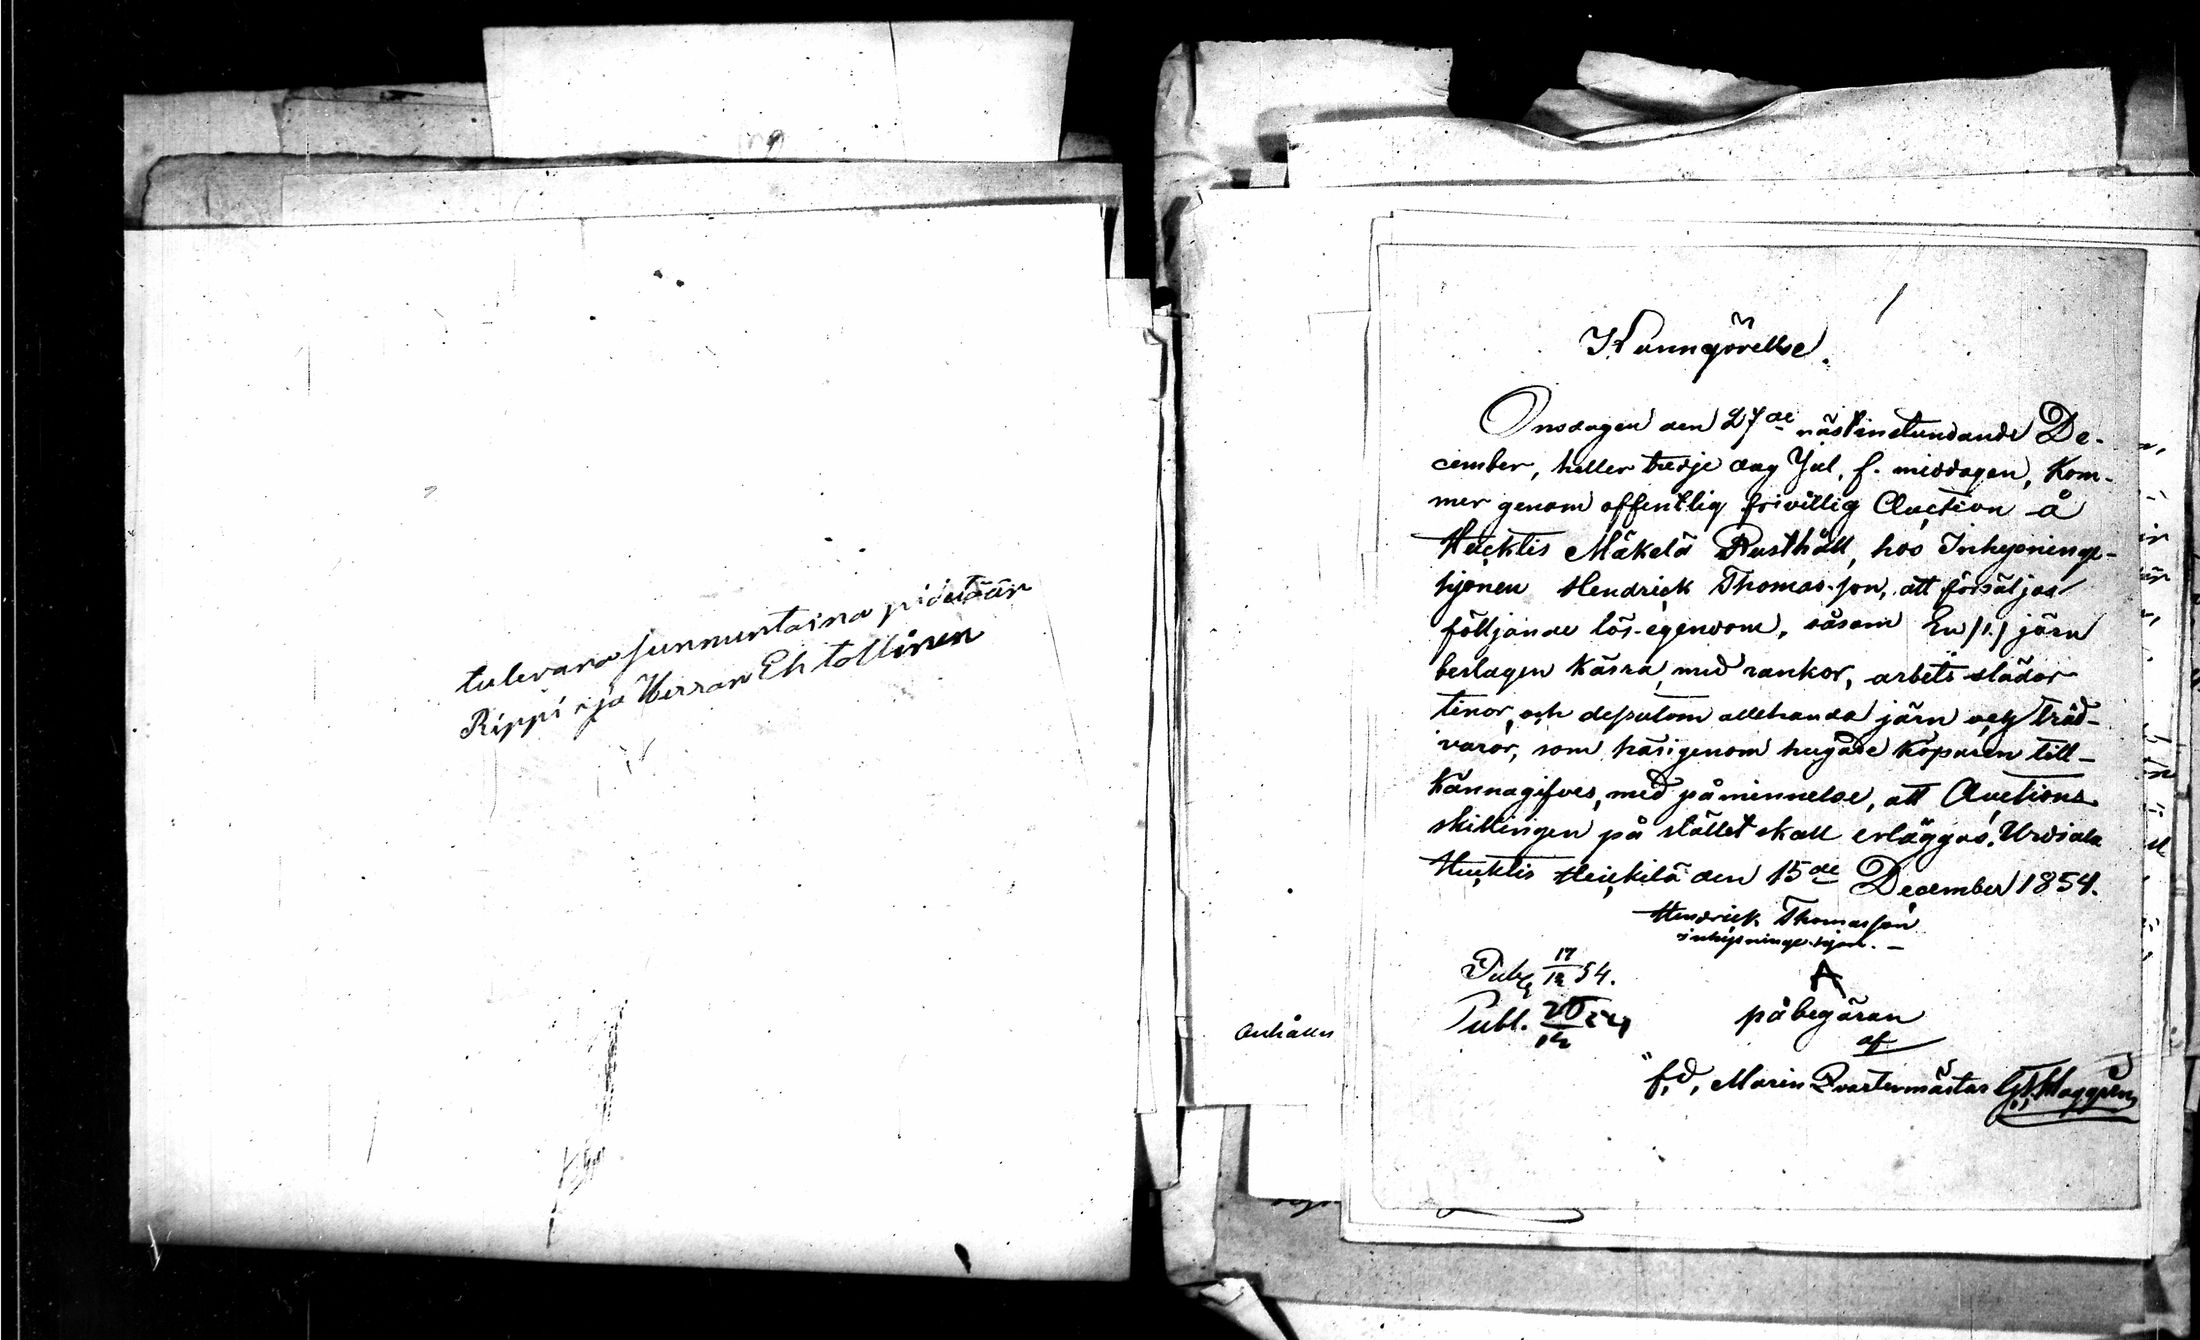 tulevana sunnuntaina pidetään
Rippi ja Herran Ehtollinen
Kunngörellse.
Onsdagen den 27de nästinstundande De-
cember, heller tredje dag Jul, f. middagen, Kom-
mer genom offentlig frivillig Auction å
Huecktis Mäkelä Rusthåll, hos Inhysninge-
hjonen Hendrick Thomasson, att försäljas
fölljande lös-egendom, såsom En /1./ järn
beslagen Kärra, med rankor, arbets slädor
tinor, och dessutom allehanda järn och träd-
varor, som härigenom hugade Köparen till-
Kännagifves, med påminnelse, att Auctions
skillingen på stället skall erläggas. Urdiala
Huecktis Heickilä den 15de December 1854.
Hendrick Thomasson
inhysninge-hjon. –
Publ 17/12 54.
Publ. 26/12 54
på begäran
af
f,d, Marin Qvartermästar
Anhålles